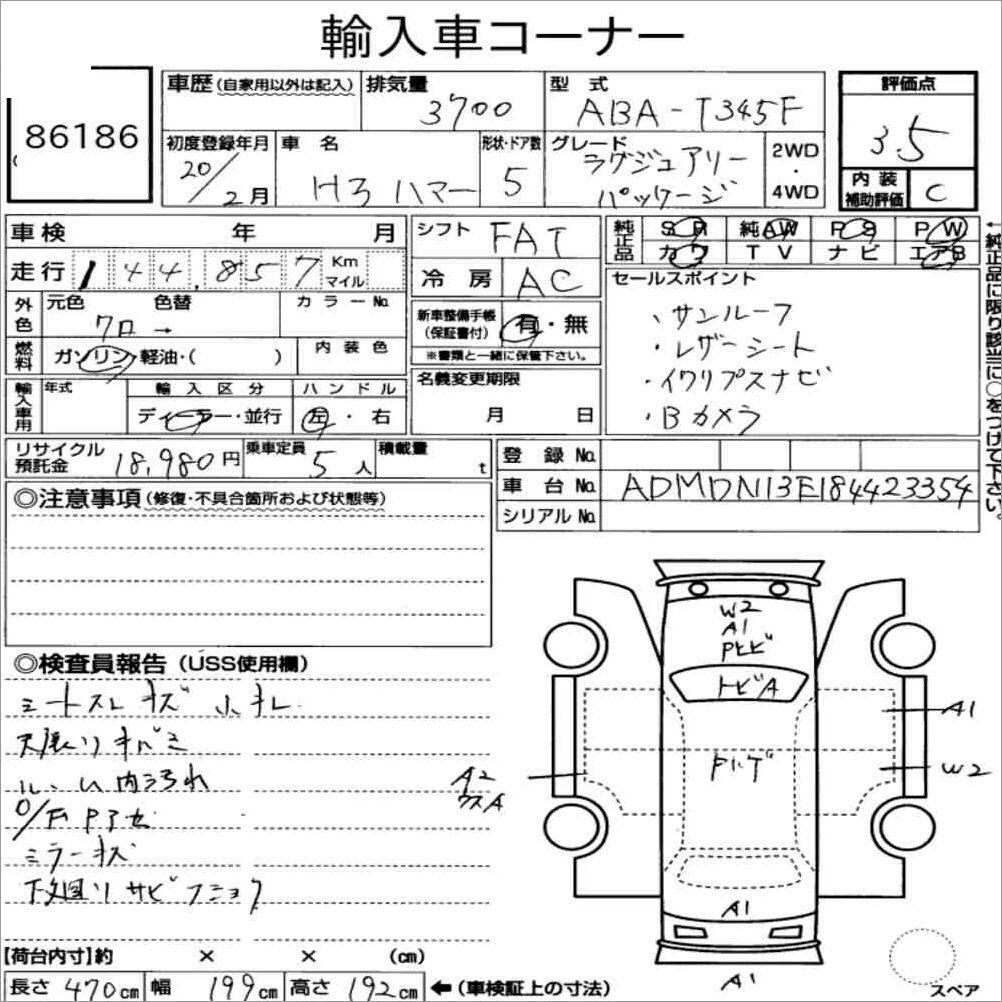 輸入車コーナー
86186
車歴(自家用以外は記入) 排気量 3700 型式 ABA-T345F 評価点 3.5
初度登録年月 20/2月 車名 H3 ハマー 形状・ドア数 5 グレード ラグジュアリーパッケージ 2WD・4WD
内装補助評価 C
車検 年 月 シフト FAT 純正品 SR 純AW PS PW
カワ TV ナビ エアB
走行 144,857 Km マイル 冷房 AC セールスポイント
外色 元色 色替 カラーNo.
クロ →
新車整備手帳(保証書付) 有・無
※書類と一緒に保管下さい。
・サンルーフ
・レザーシート
・イクリプスナビ
・Bカメラ
燃料 ガソリン・軽油・( ) 内装色
名義変更期限 月 日
輸入車用 年式 輸入区分 ハンドル
ディーラー・並行 左・右
←純正品に限り該当に○をつけて下さい。
リサイクル預託金 18,980円 乗車定員 5人 積載量 t
登録No.
車台No. ADMDN13E184423354
シリアルNo.
◎注意事項(修復・不具合箇所および状態等)
◎検査員報告(USS使用欄)
シートスレ キズ 小キレ
天張り キバミ
ルーム内汚れ
ミラーキズ
下廻り サビ フショク
W2
A1
トビA
A1
W2
A2
ウスA
A1
A1
【荷台内寸】約 × × (cm)
長さ 470cm 幅 199cm 高さ 192cm ←(車検証上の寸法)
スペア